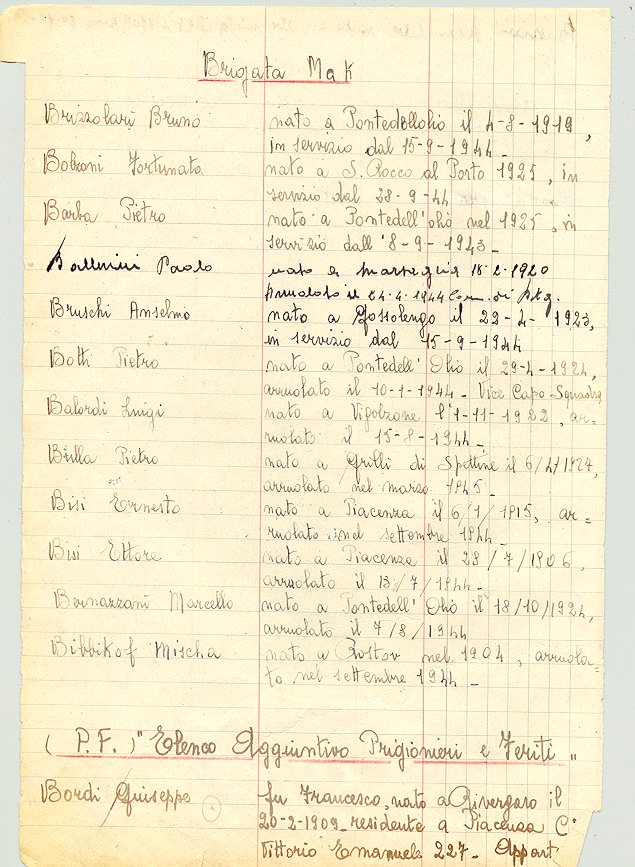 Brigata Mak
Brizzolari Bruno nato a Pontedellolio il 4-8-1919,
in servizio dal 15-9-1944_
Bobroni Fortunata nato a S. Rocco al Porto 1925, in
servizio dal 28-9-44
Barba Pietro nato a Pontedell'olio nel 1925, in
servizio dall'8-9-1943_
Ballerini Paolo nato a 18-2-1920
arruolato il 24-4-1944 Com. di
Bruschi Anselmo nato a Gossolengo il 22-4-1923,
in servizio dal 15-9-1944
Botti Pietro nato a Pontedell'Olio il 29-4-1924,
arruolato il 10-1-1944_ Vice Capo-Squadra
Balordi Luigi nato a Vigolzone l'1-11-1922, ar=
ruolato il 15-8-1944_
Brilla Pietro nato a Grilli di Spettine il 6/4/1924,
arruolato nel marzo 1945_
Bisi Ernesto nato a Piacenza il 6/1/1915, ar=
ruolato nel settembre 1944_
Bisi Ettore nato a Piacenza il 28/7/1906,
arruolato il 13/7/1944_
Bernazzani Marcello nato a Pontedell'Olio il 18/10/1924,
arruolato il 7/8/1944
Bibbikof Mischa nato a Rostov nel 1904, arruola-
to nel settembre 1944_
(P.F.) "Elenco Aggiuntivo Prigionieri e Feriti"
Bordi Giuseppe fu Francesco, nato a Rivergaro il
20-2-1909_residente a Piacenza C°
Vittorio Emanuele 227_ Appart